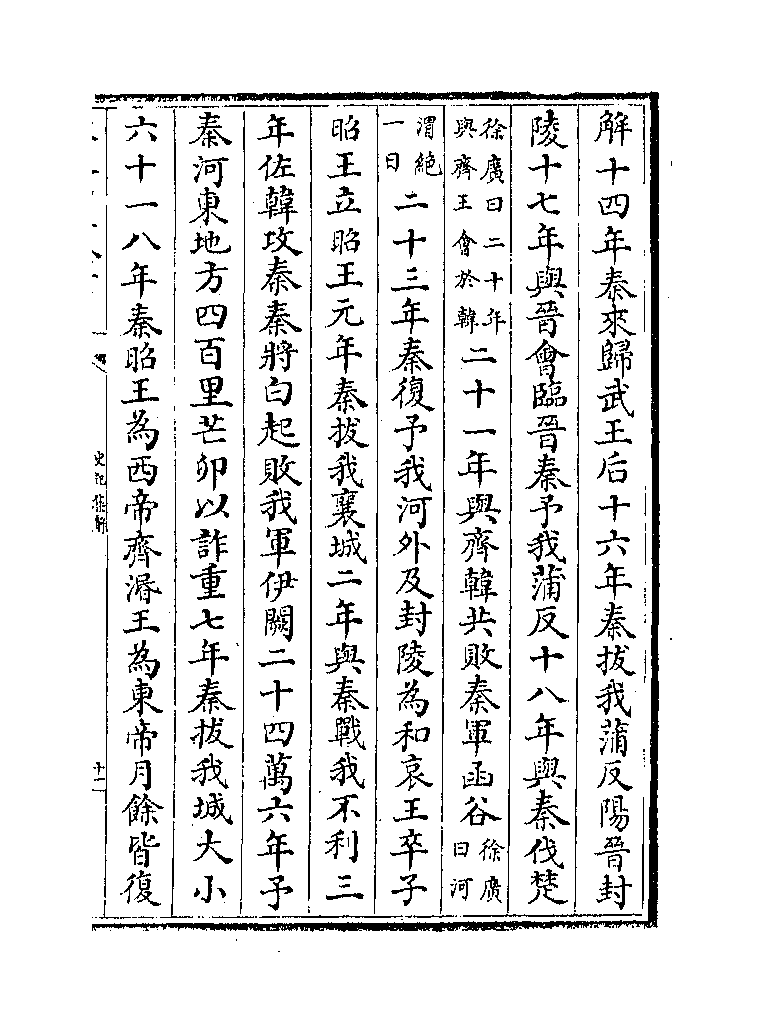 解十四年秦來歸武王后十六年秦拔我蒲反陽晉封
陵十七年與晉會臨晉秦予我蒲反十八年與秦伐楚
徐廣曰二十年
與齊王會於韓
二十一年與齊韓共敗秦軍函谷
徐廣
曰河
渭絶
一日
二十三年秦復予我河外及封陵為和哀王卒子
昭王立昭王元年秦拔我襄城二年與秦戰我不利三
年佐韓攻秦秦將白起敗我軍伊闕二十四萬六年予
秦河東地方四百里芒卯以詐重七年秦拔我城大小
六十一八年秦昭王為西帝齊湣王為東帝月餘皆復
史記集解
十二